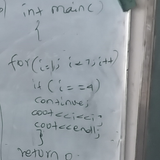 int main()
{
for(i=1; i<7; i++)
if (i==4)
continue;
cout<<i<<i;
cout<<endl;
}
return 0